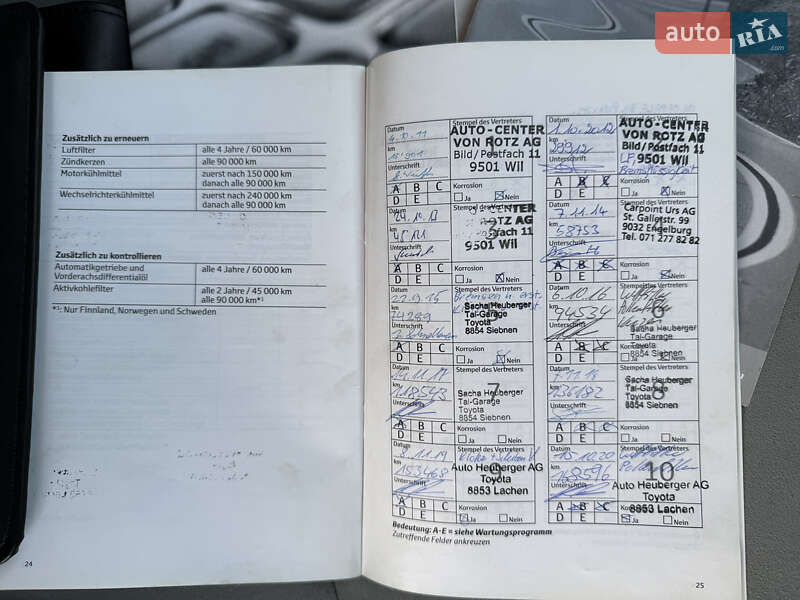 auto RIA .com
Zusätzlich zu erneuern
Luftfilter alle 4 Jahre / 60 000 km
Zündkerzen alle 90 000 km
Motorkühlmittel zuerst nach 150 000 km
danach alle 90 000 km
Wechselrichterkühlmittel zuerst nach 240 000 km
danach alle 90 000 km
Zusätzlich zu kontrollieren
Automatikgetriebe und alle 4 Jahre / 60 000 km
Vorderachsdifferentialöl
Aktivkohlefilter alle 2 Jahre / 45 000 km
alle 90 000 km*¹
*¹: Nur Finnland, Norwegen und Schweden
24
Datum 4.10.11
km
Unterschrift
A B C
D E
Stempel des Vertreters
AUTO-CENTER
VON ROTZ AG
Bild / Postfach 11
9501 Wil
Korrosion
Ja Nein
Datum 1.10.2012
km 29912
Unterschrift
A B C
D E
Stempel des Vertreters
AUTO-CENTER
VON ROTZ AG
Bild / Postfach 11
9501 Wil
Bremsflüssigkeit
Korrosion
Ja Nein
Datum
km
Unterschrift
A B C
D E
Stempel des Vertreters
CENTER
ROTZ AG
9501 Wil
Korrosion
Ja Nein
Datum 7.11.14
km 58753
Unterschrift
A B C
D E
Stempel des Vertreters
Carpoint Urs AG
St. Gallerstr. 99
9032 Engelburg
Tel. 071 277 82 82
Korrosion
Ja Nein
Datum 22.9.15
km 74289
Unterschrift
A B C
D E
Stempel des Vertreters
5
Sacha Heuberger
Tal-Garage
Toyota
8854 Siebnen
Korrosion
Ja Nein
Datum 6.10.16
km 94534
Unterschrift
A B C
D E
Stempel des Vertreters
6
Sacha Heuberger
Tal-Garage
Toyota
8854 Siebnen
Korrosion
Ja Nein
Datum 14.11.17
km 118543
Unterschrift
A B C
D E
Stempel des Vertreters
7
Sacha Heuberger
Tal-Garage
Toyota
8854 Siebnen
Korrosion
Ja Nein
Datum
km 136182
Unterschrift
A B C
D E
Stempel des Vertreters
8
Sacha Heuberger
Tal-Garage
Toyota
8854 Siebnen
Korrosion
Ja Nein
Datum 8.11.19
km 153468
Unterschrift
A B C
D E
Stempel des Vertreters
9
Auto Heuberger AG
Toyota
8853 Lachen
Korrosion
Ja Nein
Datum 15.10.20
km 163596
Unterschrift
A B C
D E
Stempel des Vertreters
10
Auto Heuberger AG
Toyota
8853 Lachen
Korrosion
Ja Nein
Bedeutung: A-E = siehe Wartungsprogramm
Zutreffende Felder ankreuzen
25